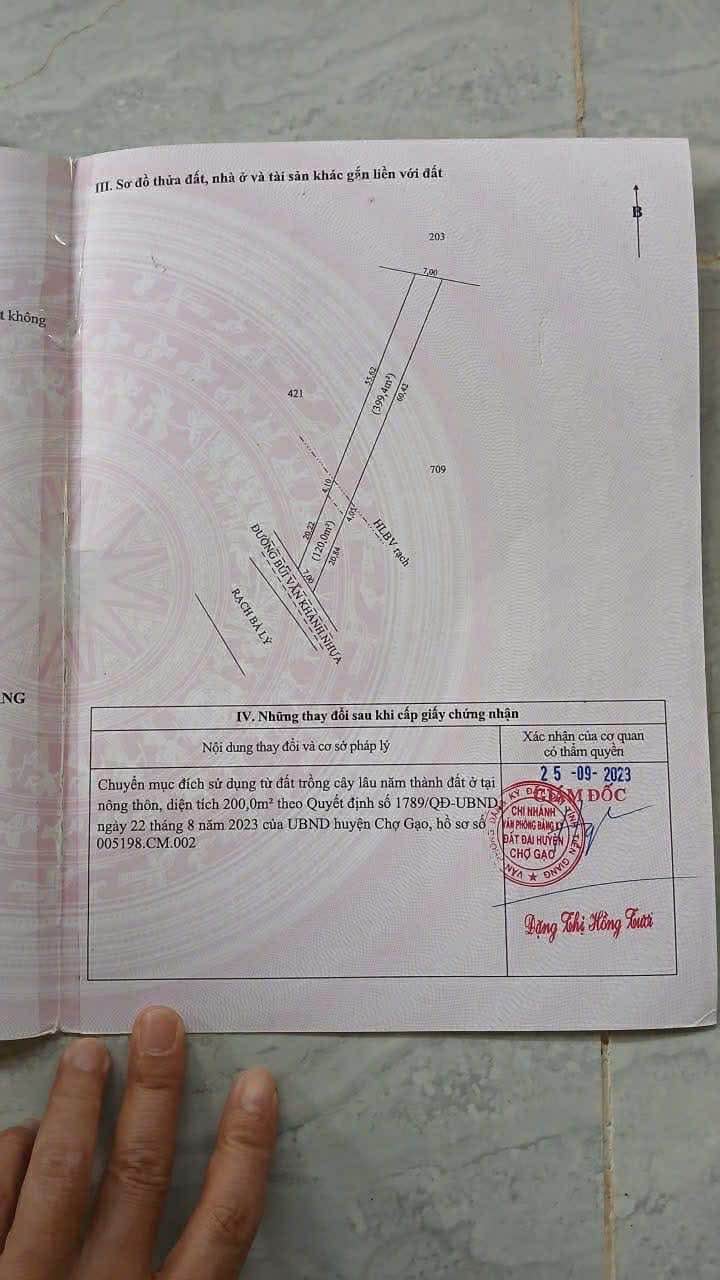 III. Sơ đồ thửa đất, nhà ở và tài sản khác gắn liền với đất
B
203
7,00
t không
55,62
(399,4m²)
60,42
421
709
4,05
20,22
(120,0m²)
20,84
HLBV rạch
7,00
ĐƯỜNG BÙI VĂN KHÁNH NHỰA
RẠCH BÀ LÝ
NG
IV. Những thay đổi sau khi cấp giấy chứng nhận
Nội dung thay đổi và cơ sở pháp lý
Xác nhận của cơ quan
có thẩm quyền
Chuyển mục đích sử dụng từ đất trồng cây lâu năm thành đất ở tại
nông thôn, diện tích 200,0m² theo Quyết định số 1789/QĐ-UBND
ngày 22 tháng 8 năm 2023 của UBND huyện Chợ Gạo, hồ sơ số
005198.CM.002
25 -09- 2023
GIÁM ĐỐC
CHI NHÁNH
VĂN PHÒNG ĐĂNG KÝ
ĐẤT ĐAI HUYỆN
CHỢ GẠO
Đặng Thị Hồng Tươi